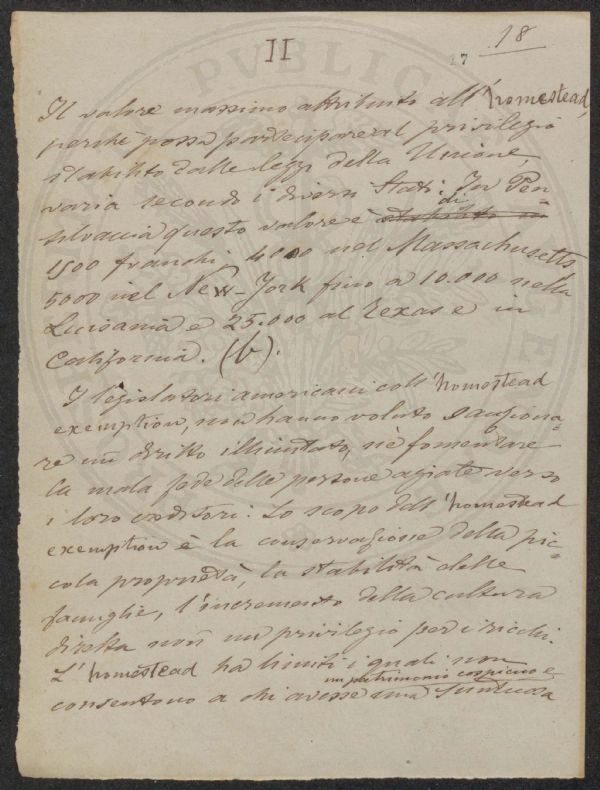 18
27
II
Il valore massimo attribuito all'homestead,
perchè possa partecipare al privilegio
stabilito dalle leggi della Unione,
varia secondo i diversi Stati. In Pen-
silvania questo valore è stabilito in di
1500 franchi. 4000 nel Massachusetts,
5000 nel New-York fino a 10.000 nella
Luisania e 25.000 al Texas e in
California. (b).
I legislatori americani coll'homestead
exemption, non hanno voluto sanziona-
re un diritto illimitato, nè fomentare
la mala fede delle persone agiate verso
i loro creditori. Lo scopo dell'homestead
exemption è la conservazione della pic-
cola proprietà, la stabilità delle
famiglie, l'incremento della cultura
diretta non un privilegio per i ricchi.
L'homestead ha limiti i quali non
un patrimonio cospicuo e
consentono a chi avesse una suntuosa